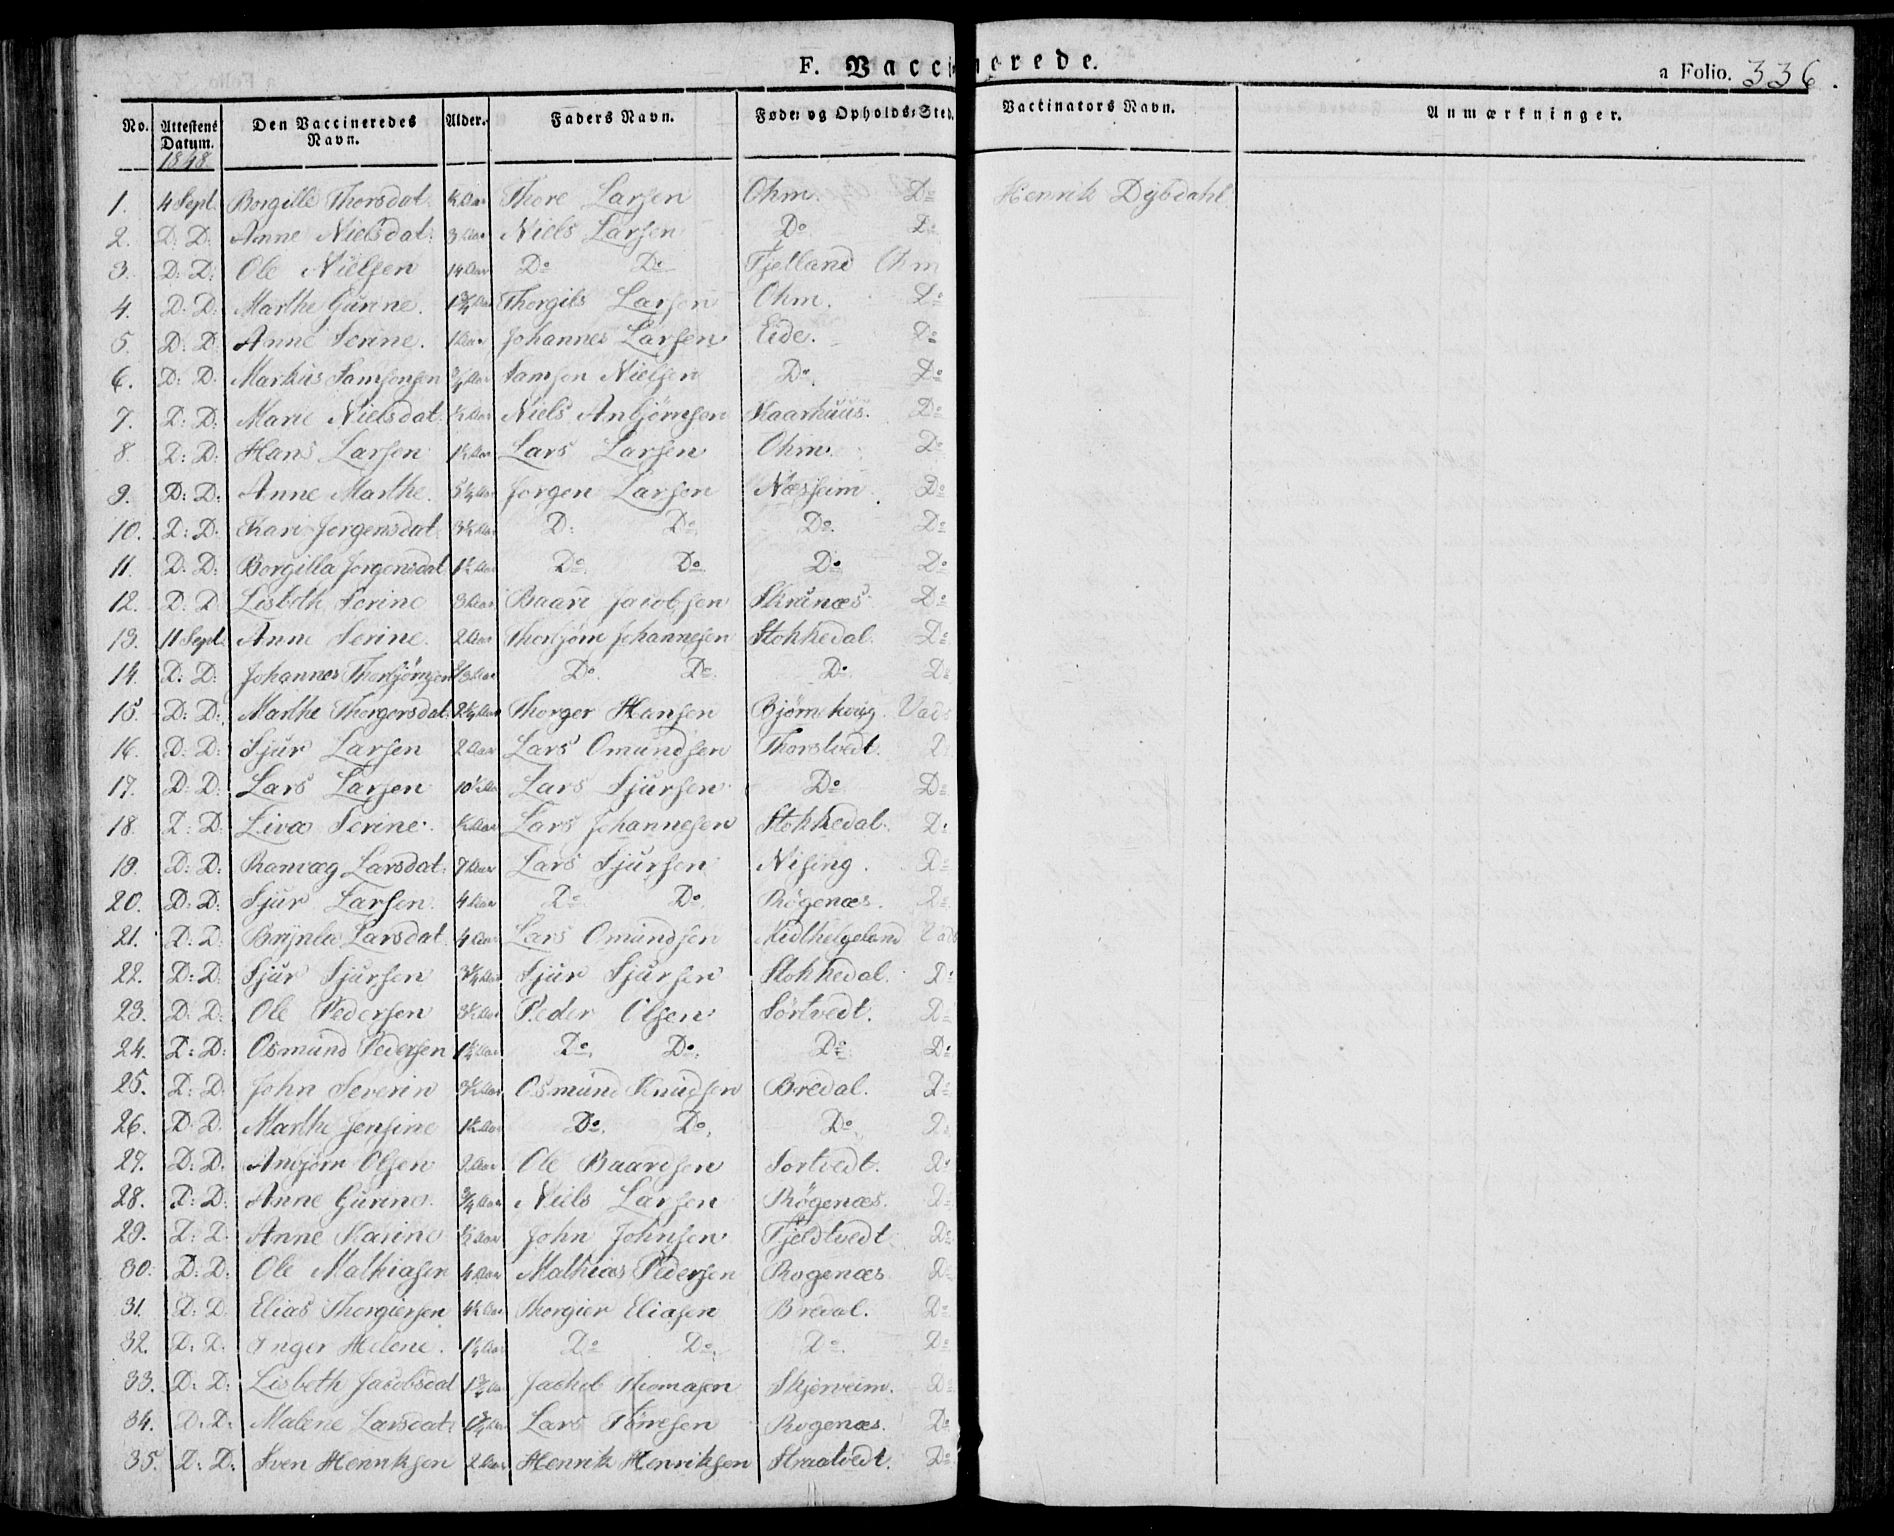 F. Vaccinerede.
a Folio. 336.
No. Attestens Datum. Den Vaccineredes Navn. Alder. Faders Navn. Føde- og Opholds-Sted. Vaccinators Navn. Anmærkninger.
1848
1. 4 Sept Borgille Thorsdat. ½ Aar Thore Larsen Ohm. Do Henrik Dybdahl
2. D: D: Anne Nielsdat: 3 Aar Niels Larsen Do Do
3. D: D: Ole Nielsen 14 Aar Do Do Fjelland Ohm
4. D: D: Marthe Gurine. 1¾ Aar Thorgils Larsen Ohm. Do
5. D: D Anne Serine. 1 Aar Johannes Larsen Eide. Do
6. D: D. Markus Samsonsen Aar Samson Nielsen Do. Do
7. D: D: Marie Nielsdat. ½ Aar Niels Anbjørnsen Kaarhuus. Do
8. D: D: Hans Larsen 1½ Aar Lars Larsen Ohm. Do
9. D: D: Anne Marthe. 5¼ Aar Jørgen Larsen Næsheim. Do
10. D: D. Kari Jørgensdat. 3½ Aar D: Do Do. Do
11. D. D: Borgilla Jørgensdat 1½ Aar Do. Do Do Do
12. D: D Lisbeth Serine 3 Aar Baard Jacobsen Skrunæs Do
13. 11 Sept. Anne Serine. 2 Aar Thorbjørn Johannesen Stokkedal. Do
14. D: D: Johannes Thorbjørnsen Aar Do. Do. Do. Do
15. D: D: Marthe Thorgersdat. 2¼ Aar Thorger Hansen Bjørnekoug. Vads
16. D: D: Sjur Larsen 2 Aar Lars Omundsen Thorstvedt. D
17. D: D: Lars Larsen 10½ Aar Lars Sjursen Do Do
18. D: D Livæ Serine. ½ Aar Lars Johannesen Stokkedal. D:
19. D: D: Ranvæg Larsdat. 7 Aar Lars Sjursen Nising. Do
20. D: D: Sjur Larsen. 4 Aar Do Do. Røgenæs. Do
21. D: D. Brynla Larsdat. 4 Aar Lars Omundsen Midthelgeland Vads
22. D: D: Sjur Sjursen 3¼ Aar Sjur Sjursen Stokkedal. D:
23. D: D: Ole Pedersen 3½ Aar Peder Olsen Sørtvedt. Do
24. D: D: Osmund Pedersen 1¼ Aar Do. Do. Do. Do
25. D: D. John Severin 3½ Aar Osmund Knudsen Bredal. Do
26. D: D. Marthe Jensine 1½ Aar Do. Do. Do. D.
27. D: D. Anbjørn Olsen 2 Aar Ole Baardsen Sørtvedt. Do
28. D: D: Anne Gurine. ¾ Aar Niels Larsen Røgenæs. Do
29. D: D. Anne Karine ½ Aar John Johnsen Fjeldtvedt Do
30. D: D. Ole Mathiasen 4 Aar Mathias Pedersen Rogenæs Do
31. D: D. Elias Thorgiersen 4½ Aar Thorgier Eliasen Bredal. Do
32. D: D. Inger Helene. 1¼ Aar Do Do. Do. Do
33. D: D: Lisbeth Jacobsdat 1¾ Aar Jackob Thomasen Skjerveim. Do
34. D: D: Malene Larsdat. 1¾ Aar Lars Tønesen Rogenæs. Do
35. D: D: Sven Henriksen 2 Aar Henrik Henriksen Straatvedt. Do